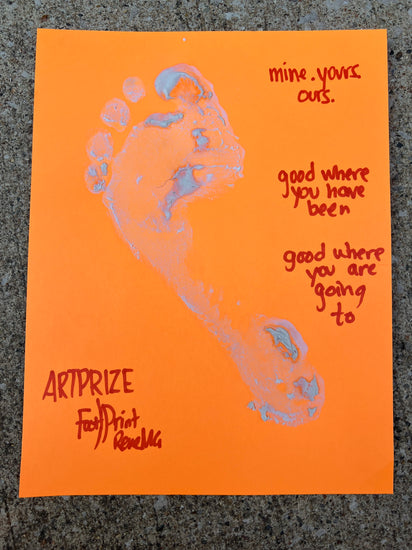 mine.yours.
ours.
good where
you have
been
good where
you are
going
to
ARTPRIZE
Foot)Print